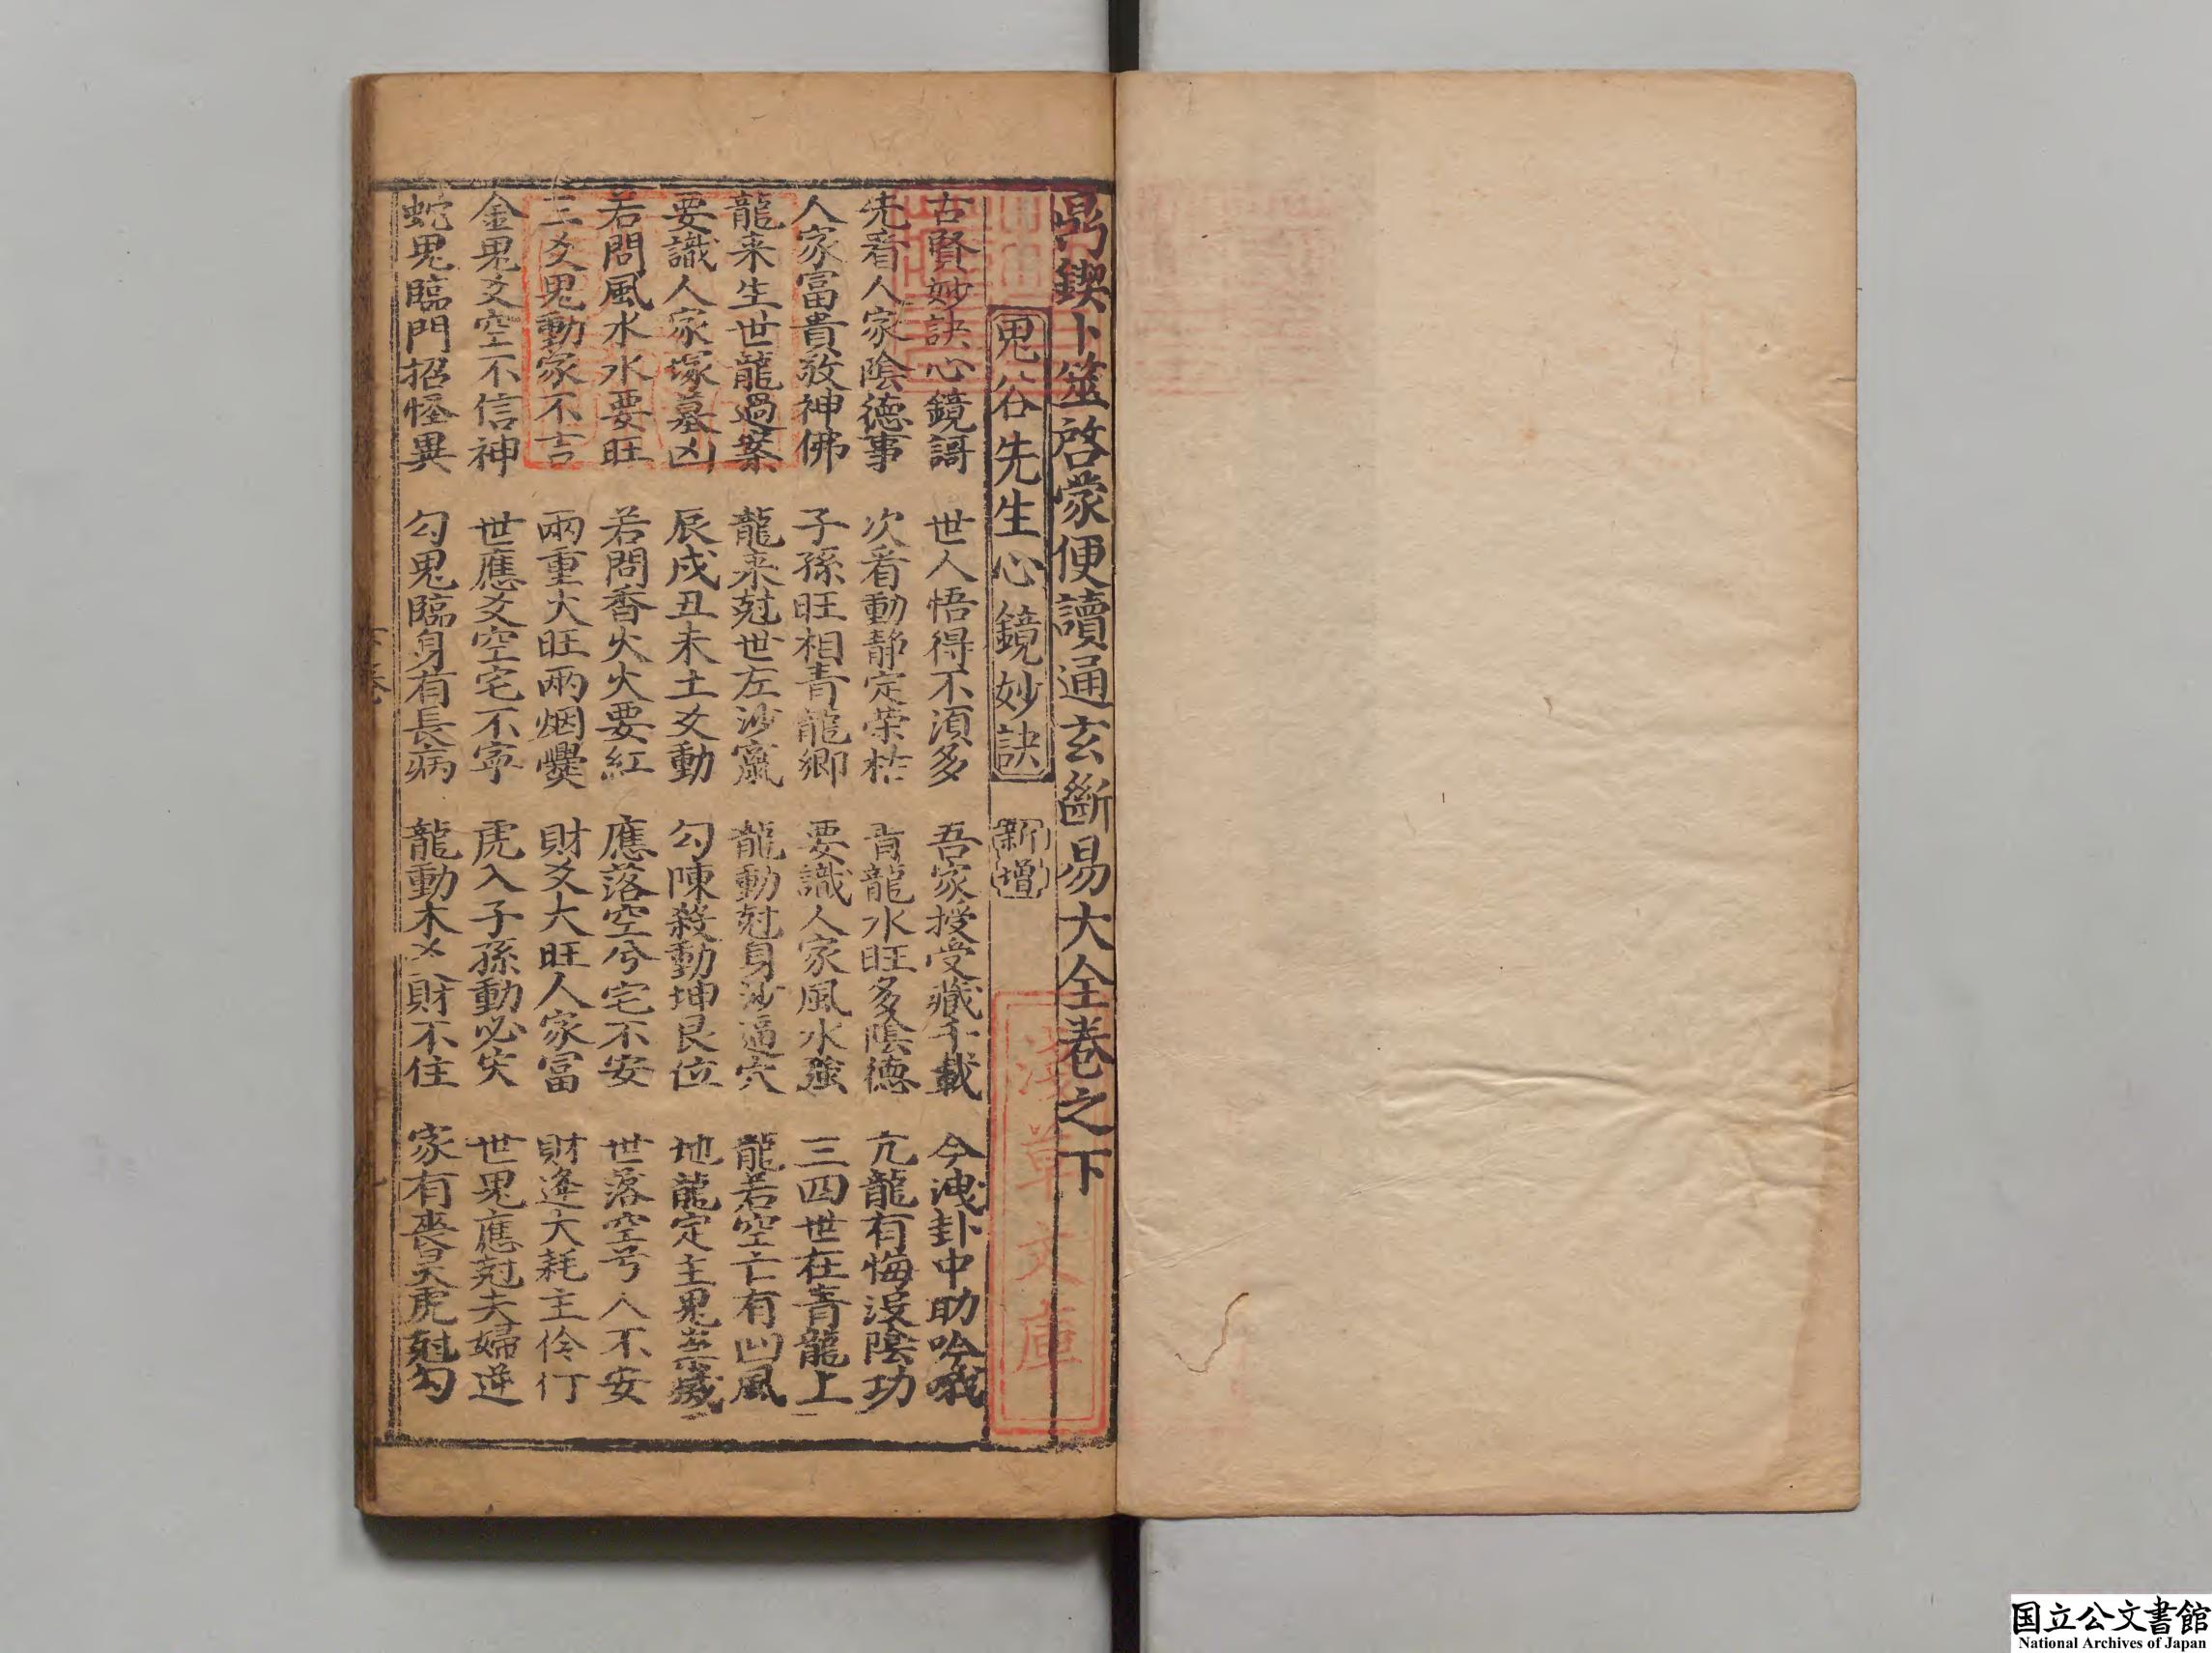 鼎鍥卜筮啓蒙便讀通玄斷易大全卷之下
鬼谷先生心鏡妙訣 新增
古賢妙訣心鏡謌 世人悟得不須多 吾家授受藏千載 今洩卦中助吟哦
先看人家陰德事 次看動靜定荣枯 青龍水旺多陰德 亢龍有悔沒陰功
人家富貴敬神佛 子孫旺相青龍卿 要識人家風水强 三四世在青龍上
龍来生世龍過案 龍来尅世左沙竄 龍動尅身沙逼穴 龍若空亡有凹風
要識人家塚墓凶 辰戌丑未土爻動 勾陳殺動坤艮位 地龍定主鬼無蔵
若問風水水要旺 若問香火火要紅 應落空兮宅不安 世落空兮人不安
三爻鬼動家不言 兩重火旺兩烟爨 財爻大旺人家冨 財逄大耗主伶仃
金鬼爻空不信神 世應爻空宅不寧 虎入子孫動必灾 世鬼應尅夫婦逆
蛇鬼臨門招怪異 勾鬼臨身有長病 龍動木爻財不住 家有喪哭虎尅勾
下卷
淺草文庫
国立公文書館
National Archives of Japan